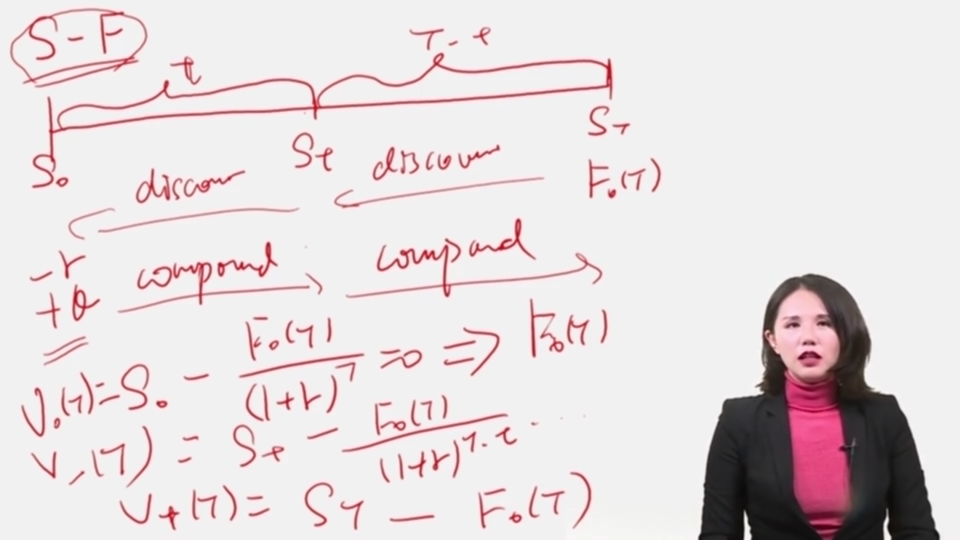 S - F
t T - t
S₀ Sₜ S_T
discoun discoun F₀(T)
-r
+θ compound compound
V₀(T) = S₀ - F₀(T)/(1+r)^T = 0 ⇒ F₀(T)
Vₜ(T) = Sₜ - F₀(T)/(1+r)^(T-t) ...
V_T(T) = S_T - F₀(T)